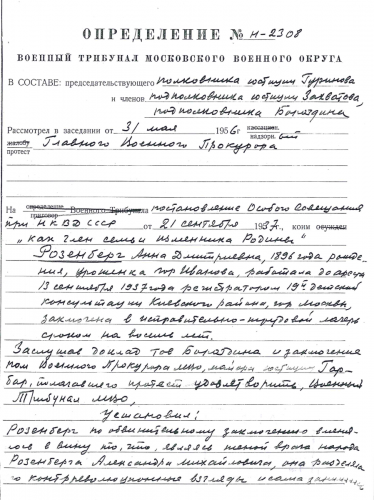 ОПРЕДЕЛЕНИЕ № Н-2308
ВОЕННЫЙ ТРИБУНАЛ МОСКОВСКОГО ВОЕННОГО ОКРУГА
В СОСТАВЕ: председательствующего полковника юстиции Гуринова
и членов подполковника юстиции Захватова,
подполковника Бораздина
Рассмотрел в заседании от 31 мая 1956 г. кассацион.
надзорн. ый
жалобу Главного Военного Прокурора
протест
На определение Военного Трибунала постановление Особого Совещания
приговор
при НКВД СССР от 21 сентября 1937, коим осужден
"как член семьи изменника Родины"
Розенберг Анна Дмитриевна, 1896 года рожде-
ния, уроженка гор Иванова, работала до ареста
13 сентября 1937 года регистратором 19й детской
консультации Киевского района, гор Москвы,
заключена в исправительно-трудовой лагерь
сроком на восемь лет.
Заслушав доклад тов Бораздина и заключение
пом Военного Прокурора МВО, майора юстиции Гар-
бар, полагавшего протест удовлетворить, Военный
Трибунал МВО,
Установил:
Розенберг по обвинительному заключению вменя-
лось в вину то, что, являясь женой врага народа
Розенберга Александра Михайловича, она разделяла
его контрреволюционные взгляды и сама